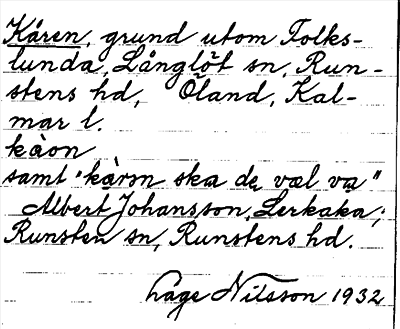 Kåren, grund utom Folks-
lunda, Långlöt sn, Run-
stens hd, Öland, Kal-
mar l.
kàon
samt "kàrən ska de væl va"
Albert Johansson, Lerkaka,
Runsten sn, Runstens hd.
Låge Nilsson 1932